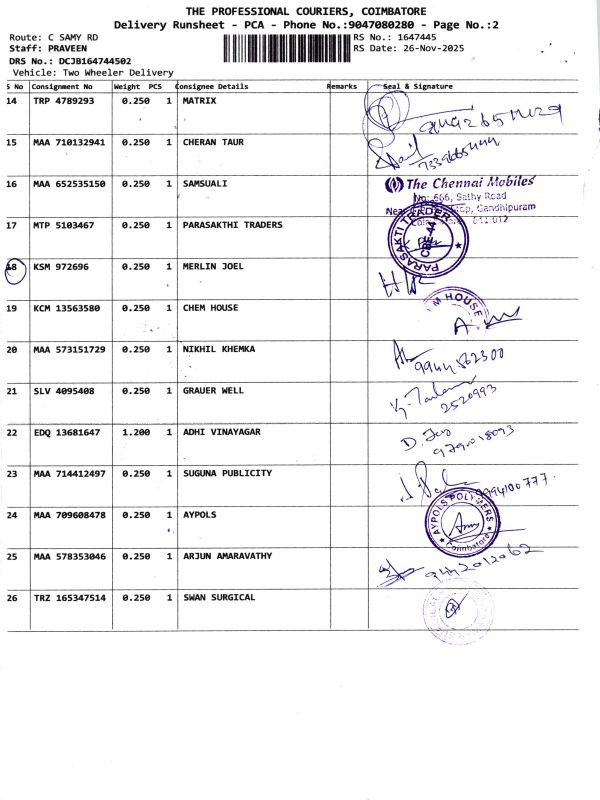 THE PROFESSIONAL COURIERS, COIMBATORE
Delivery Runsheet - PCA - Phone No.:9047080280 - Page No.:2
Route: C SAMY RD RS No.: 1647445
Staff: PRAVEEN RS Date: 26-Nov-2025
DRS No.: DCJB164744502
Vehicle: Two Wheeler Delivery
S No Consignment No Weight PCS Consignee Details Remarks Seal & Signature
14 TRP 4789293 0.250 1 MATRIX
15 MAA 710132941 0.250 1 CHERAN TAUR
16 MAA 652535150 0.250 1 SAMSUALI The Chennai Mobiles
No: 666, Sathy Road
Gandhipuram
17 MTP 5103467 0.250 1 PARASAKTHI TRADERS PARASAKTI TRADER
18 KSM 972696 0.250 1 MERLIN JOEL
19 KCM 13563580 0.250 1 CHEM HOUSE M HOUSE
20 MAA 573151729 0.250 1 NIKHIL KHEMKA 9944562300
21 SLV 4095408 0.250 1 GRAUER WELL 2520993
22 EDQ 13681647 1.200 1 ADHI VINAYAGAR
23 MAA 714412497 0.250 1 SUGUNA PUBLICITY
24 MAA 709608478 0.250 1 AYPOLS AYPOLS POLYMERS Coimbatore
25 MAA 578353046 0.250 1 ARJUN AMARAVATHY 9442012062
26 TRZ 165347514 0.250 1 SWAN SURGICAL